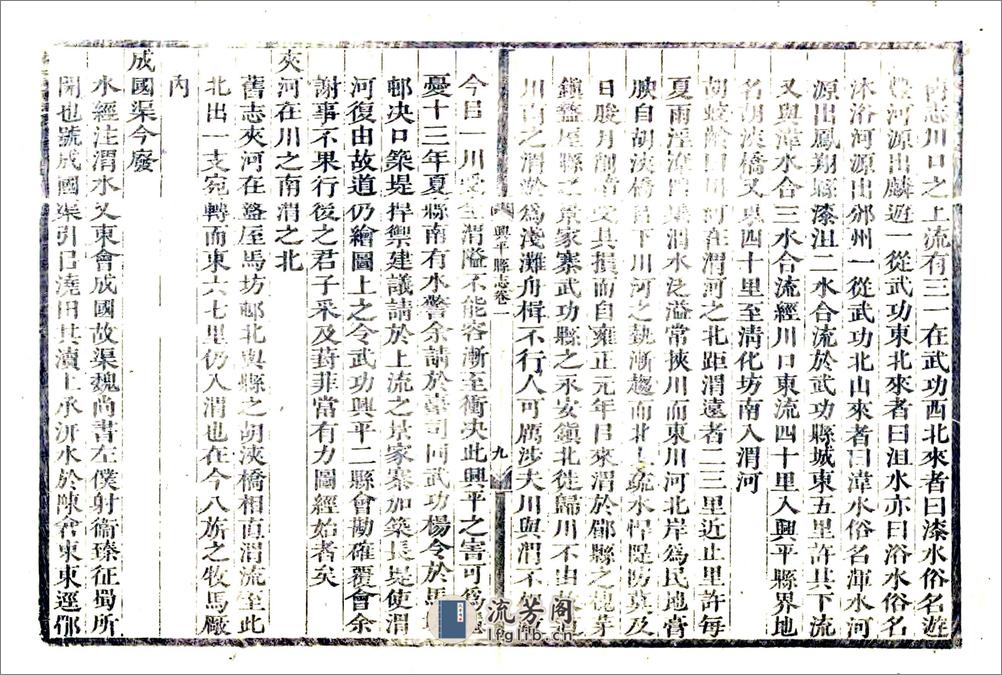 內志川口之上流有三一在武功西北來者曰漆水俗名遊
麟河源出麟遊一從武功東北來者曰沮水亦曰浴水俗名
沐浴河源出邠州一從武功北山來者曰湋水俗名渾水河
源出鳳翔縣漆沮二水合流於武功縣城東五里許其下流
又與湋水合三水合流經川口東流四十里入興平縣界地
名胡浹橋又東四十里至清化坊南入渭河
胡蛟齡曰川河在渭河之北距渭遠者二三里近止里許每
夏雨淫潦渭水泛溢常挾川而東川河北岸為民地膏
腴自胡浹橋下川河之勢漸趨而北上疏水悍隄防莫及
日朘月削其損而自雍正元年日來渭於郿縣之槐芽
鎮盩厔縣之景家寨武功縣之永安鎮北徙歸川不由故
川自之渭於為淺灘舟楫不行人可厲涉夫川與渭不
今日一川受全渭隘不能容漸至衝決此興平之害可為
憂十三年夏縣南有水警余請於司同武功楊令於馬
邨决口築堤捍禦建議請於上流之景家寨加築長堤使渭
河復由故道仍繪圖上之令武功興平二縣會勘確覆會余
謝事不果行後之君子采及葑菲當有力圖經始者矣
夾河在川之南渭之北
舊志夾河在盩厔馬坊邨北與縣之胡浹橋相直渭流至此
北出一支宛轉而東六七里仍入渭也在今八旂之牧馬廠
內
成國渠今廢
水經注渭水又東會成國故渠魏尚書左僕射衞臻征蜀所
開也號成國渠引已澆田其瀆上承汧水於陳倉東東逕郿
興平縣志卷一
九
流芳阁
lfglib.cn